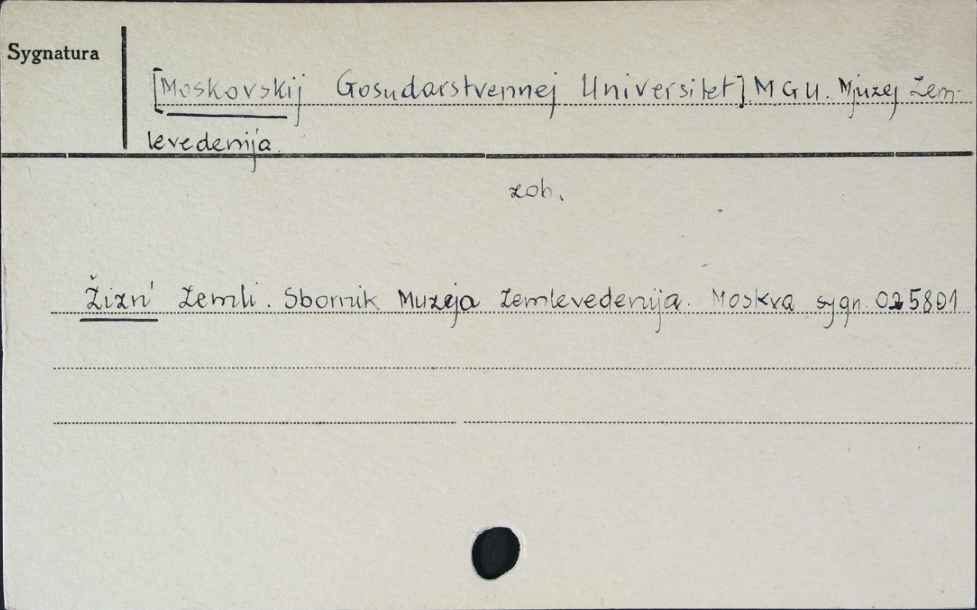 Sygnatura
[Moskovskij Gosudarstvennej Universitet] MGU. Mjuzej Zem-
levedenija.
zob.
Žizn' Zemli. Sbornik Muzeja Zemlevedenija. Moskva sygn. 025801